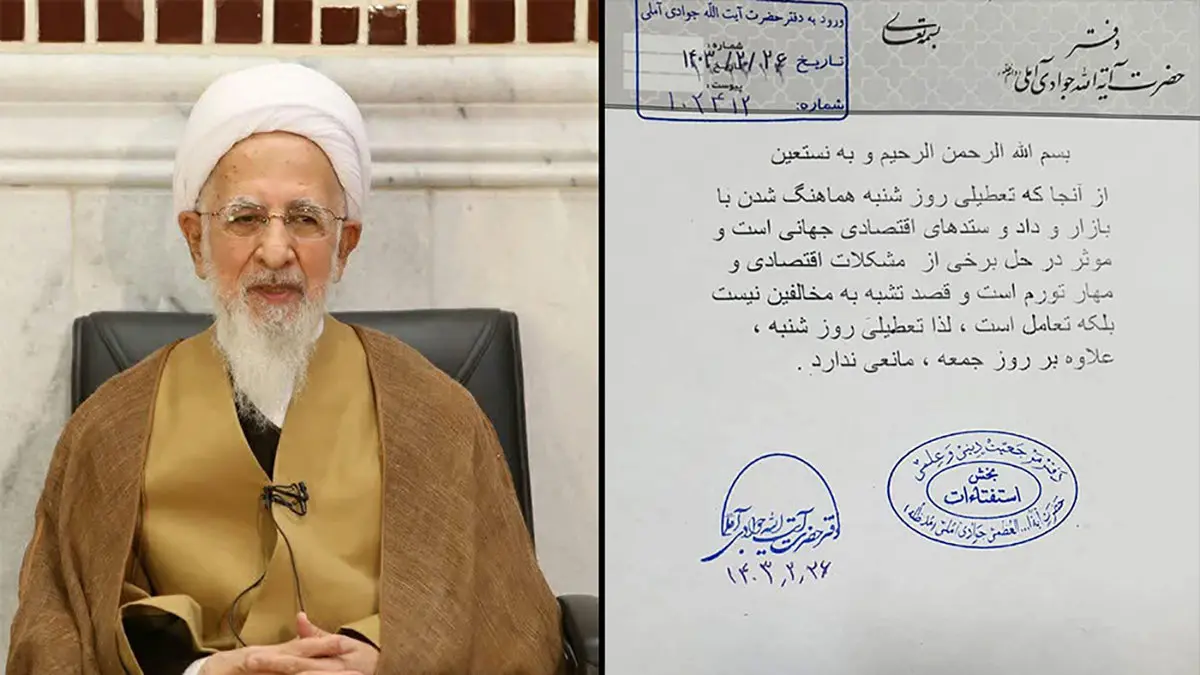 بسمه تعالی
دفتر
حضرت آیة الله جوادی آملی
ورود به دفتر حضرت آیت الله جوادی آملی
شماره:
تاریخ ۱۴۰۳/۲/۲۶
پیوست:
شماره: ۱۰۲۴۱۲
بسم الله الرحمن الرحیم و به نستعین
از آنجا که تعطیلی روز شنبه هماهنگ شدن با
بازار و داد و ستدهای اقتصادی جهانی است و
موثر در حل برخی از مشکلات اقتصادی و
مهار تورم است و قصد تشبه به مخالفین نیست
بلکه تعامل است ، لذا تعطیلیَ روز شنبه ،
علاوه بر روز جمعه ، مانعی ندارد .
دفتر مرجعیت دینی و علمی
بخش
استفتاءات
حضرت آیة ا... العظمی جوادی آملی
دفتر حضرت آیت الله جوادی آملی
۱۴۰۳٫۲٫۲۶